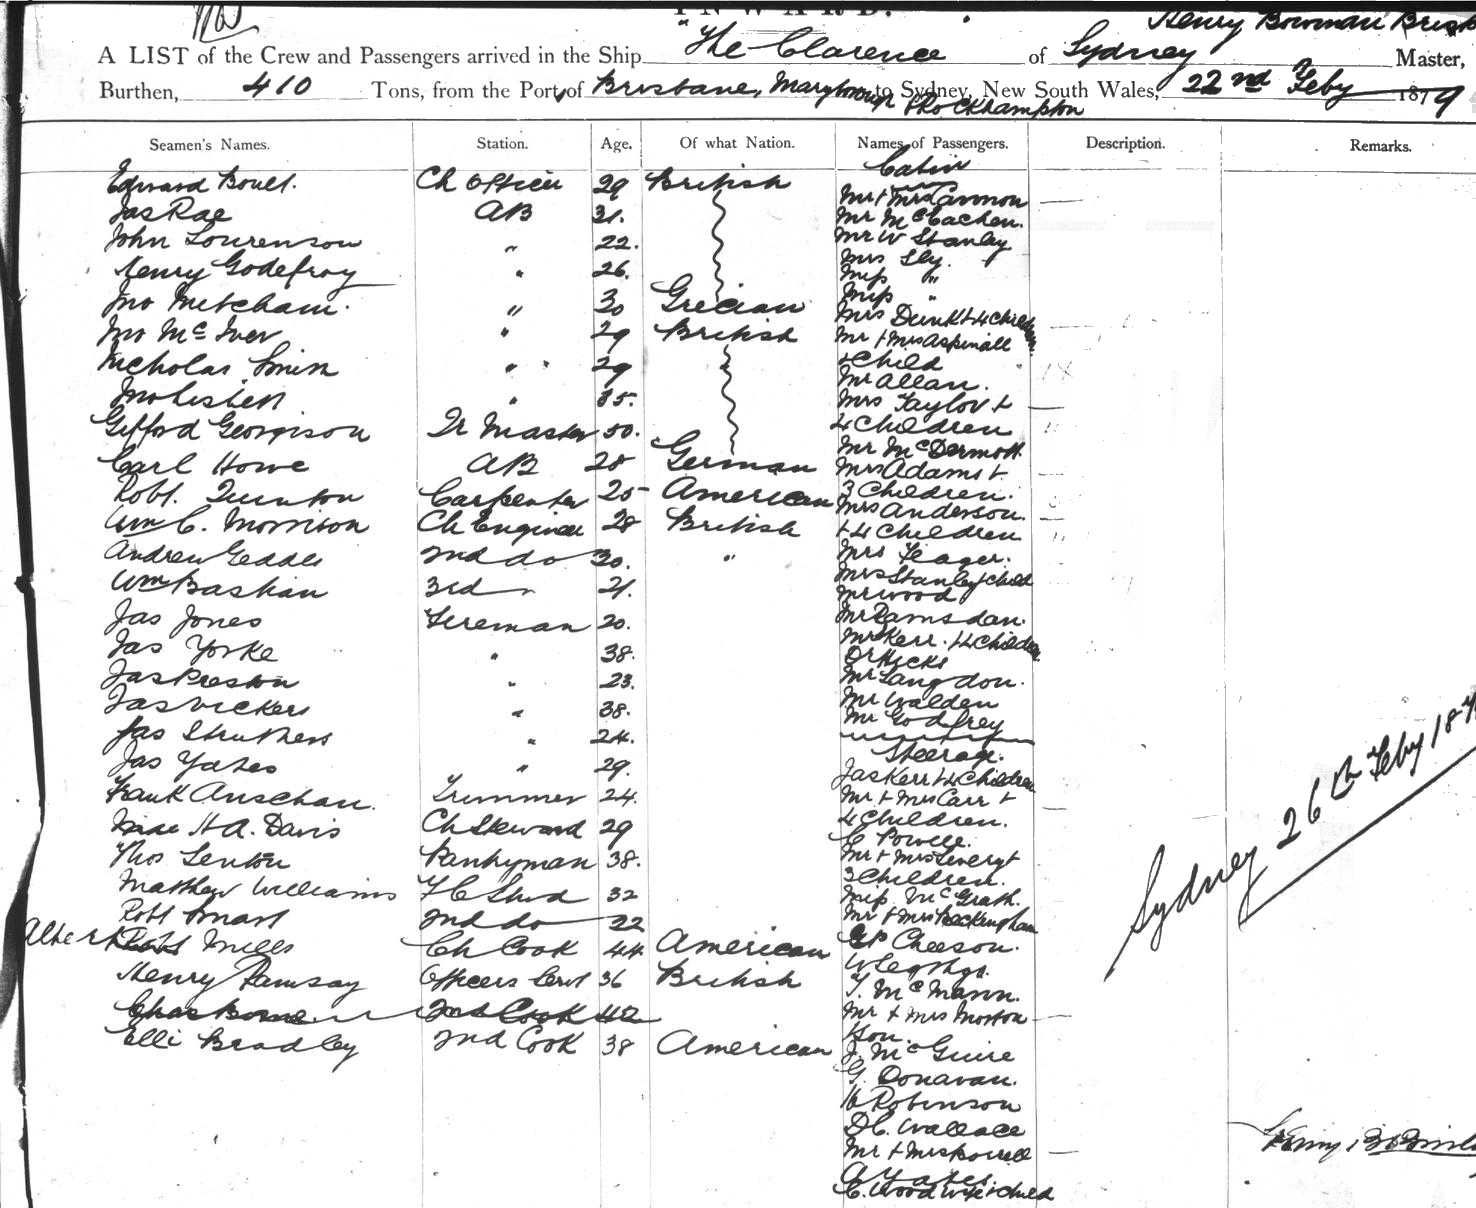 INWARD.
Henry Bowman
A LIST of the Crew and Passengers arrived in the Ship "The Clarence of Sydney Master,
Burthen, 410 Tons, from the Port of Brisbane, Maryborough & Rockhampton to Sydney, New South Wales, 22nd Feby 1879
Seamen's Names. Station. Age. Of what Nation. Names of Passengers. Description. Remarks.
Cabin
Edward Ch Officer 29 British
Mr & Mrs Cannon
Jas Rae AB 31.
Mr McEachen.
John Lourenson " 22.
Mr W Stanley
Mrs Sly.
Henry Godefroy " 26.
Miss "
Miss "
Jno Mitcham. " 30 Grecian
Mrs Dunk & 4 Children
Jno McIver " 29 British
Mr & Mrs Aspinall
Nicholas " 29
& Child
Mr Allan.
" 35.
Mrs Taylor &
Gifford Georgison Qr Master 50.
4 Children
Mr McDermott.
Carl Howe AB 28 German
Mrs Adams &
Robt. Quinton Carpenter 25 American
3 Children.
Mrs Anderson.
Wm C. Morrison Ch Engineer 28 British
& 4 Children
Andrew Geddes 2nd do 30. "
Mrs Yeager.
Mrs Stanley & Child
Wm Bastian 3rd " 21.
Mr Wood
Jas Jones Fireman 20.
Mr Ramsdan.
Mr Kerr. 4 Children
Jas Yorke " 38.
Dr Hicks
Jas Preston " 23.
Mr Langdon.
Jas Vickers " 38.
Mr Walden
Mr Godfrey
Jas Struthers " 24.
Steerage.
Jas Yates " 29.
Jas Kerr 4 Children
Frank Anschau. Trimmer 24.
Mr & Mrs Carr &
H A. Davis Ch Steward 29
4 Children.
C Powell.
Thos Lenton Pantryman 38.
Mr & Mrs &
3 Children.
Matthew Williams F C Stwd 32
Miss McGrath.
Robt Smart 2nd do 22
Mr & Mrs Beckingham
Albert Mills Ch Cook 44 American
Cheeson.
Henry Ramsay Officers Servt 36 British
T. McMann.
Chas 2nd Cook 42
Mr & Mrs Morton
Son.
Elli Bradley 2nd Cook 38 American
J. McGuire
G. Donavan.
H Robinson
D C. Wallace
Mr & Mrs
A Yates.
C. Wood wife & child
Sydney 26th Feby 187
Henry B